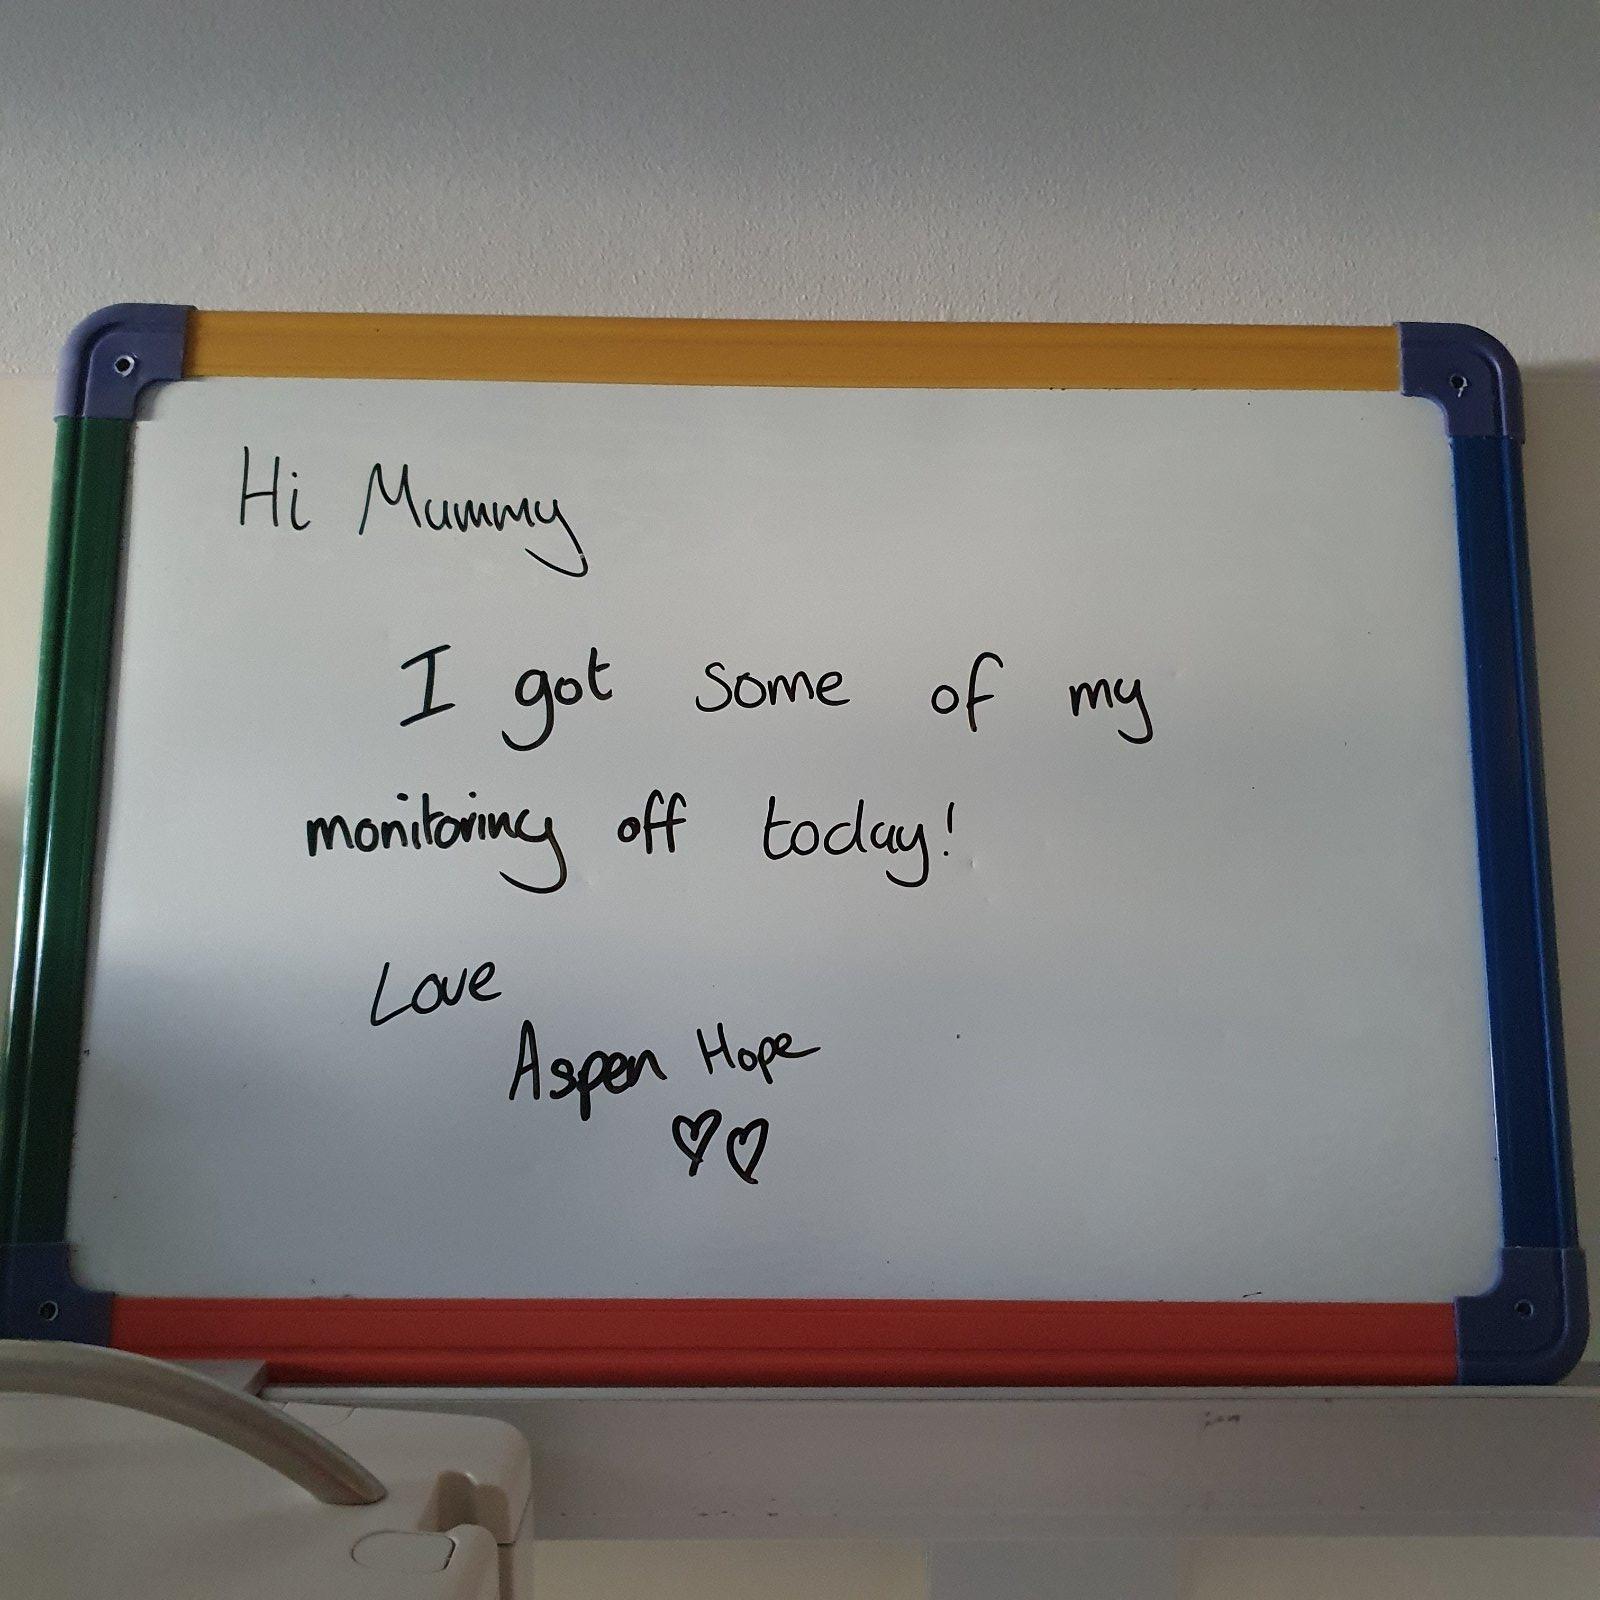 Hi Mummy
I got some of my
monitoring off today!
Love
Aspen Hope
♡♡